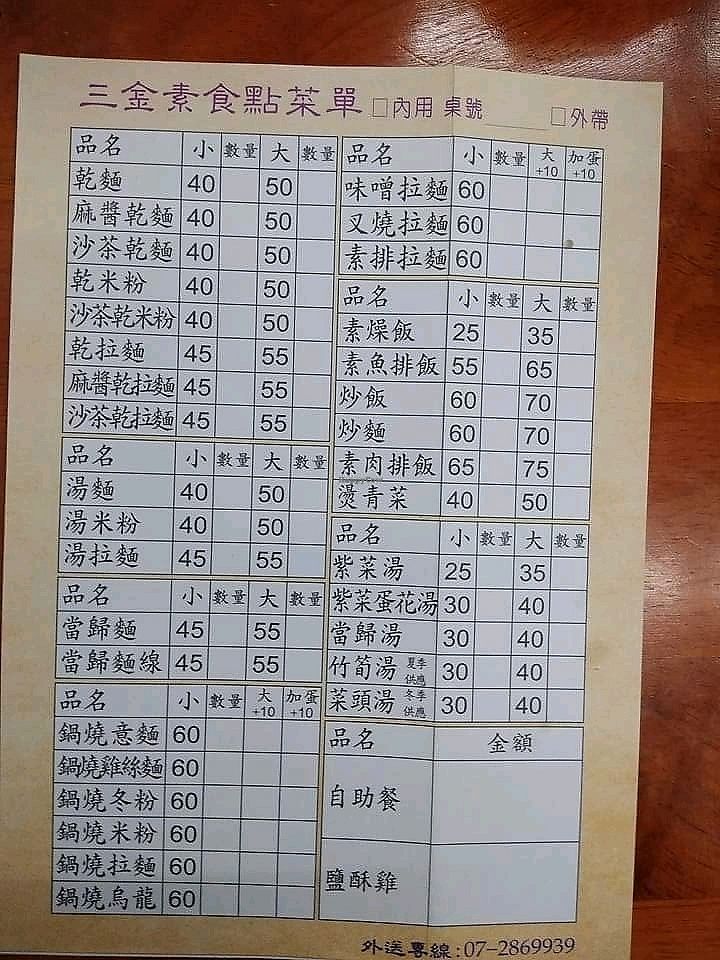 三金素食點菜單 □內用 桌號______ □外帶
品名 小 數量 大 數量
乾麵 40 50
麻醬乾麵 40 50
沙茶乾麵 40 50
乾米粉 40 50
沙茶乾米粉 40 50
乾拉麵 45 55
麻醬乾拉麵 45 55
沙茶乾拉麵 45 55
品名 小 數量 大 數量
湯麵 40 50
湯米粉 40 50
湯拉麵 45 55
品名 小 數量 大 數量
當歸麵 45 55
當歸麵線 45 55
品名 小 數量 大+10 加蛋+10
鍋燒意麵 60
鍋燒雞絲麵 60
鍋燒冬粉 60
鍋燒米粉 60
鍋燒拉麵 60
鍋燒烏龍 60
品名 小 數量 大+10 加蛋+10
味噌拉麵 60
叉燒拉麵 60
素排拉麵 60
品名 小 數量 大 數量
素燥飯 25 35
素魚排飯 55 65
炒飯 60 70
炒麵 60 70
素肉排飯 65 75
燙青菜 40 50
品名 小 數量 大 數量
紫菜湯 25 35
紫菜蛋花湯 30 40
當歸湯 30 40
竹筍湯 夏季供應 30 40
菜頭湯 冬季供應 30 40
品名 金額
自助餐
鹽酥雞
外送專線:07-2869939